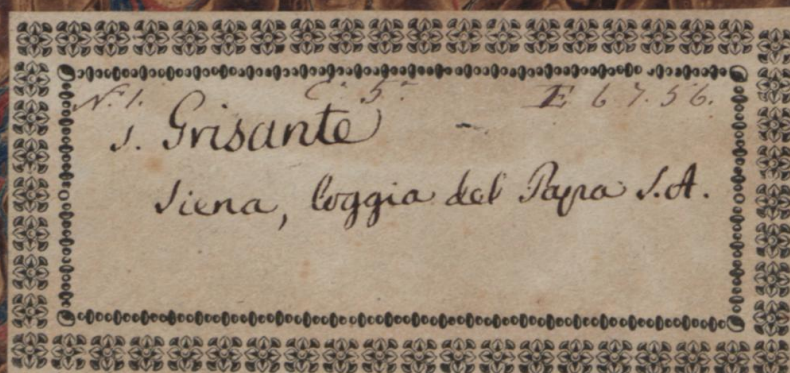 N.º 1. C.º 5.º E 6 7. 56.
S. Grisante
Siena, loggia del Papa S.A.